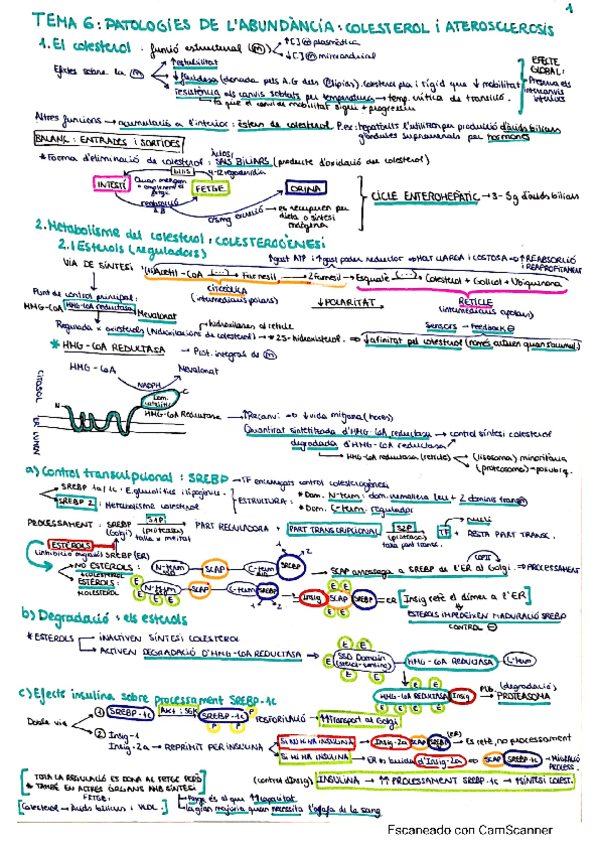 1
TEMA 6: PATOLOGIES DE L'ABUNDÀNCIA: COLESTEROL i ATEROSCLEROSIS
1. El colesterol. funció estructural (m) ↑[C] (m) plasmàtica
↓[C] (m) mitocondrial
Efectes sobre la (m) ↑estabilitat
↓fluïdesa (donada pels A.G dels lípids). Colesterol pla i rígid que ↓ mobilitat
resistència als canvis sobtats per temperatura → temp. crítica de transició.
fa que el canvi de mobilitat sigui + progressiu
EFECTE GLOBAL:
Altres funcions → acumulació a l'interior: èsters de colesterol. P.ex: hepatòcits l'utilitzen per producció d'àcids biliars
glàndules suprarenals per hormones
BALANÇ: ENTRADES i SORTIDES
* Forma d'eliminació de colesterol: SALS BILIARS (producte d'oxidació del colesterol)
INTESTÍ
FETGE
ORINA
reabsorció
CICLE ENTEROHEPÀTIC → 3-5g d'àcids biliars
2. Metabolisme del colesterol: COLESTEROGÈNESI
2.1 Esterols (reguladors)
↑gast ATP i ↑gast poder reductor → MOLT LLARGA I COSTOSA → ↑REABSORCIÓ
VIA DE SÍNTESI Acetil-CoA (...) → Farnesil → 2 Farnesil → Esqualè (...) → Colesterol + Golicol + Ubiquinona
CITOSÒLICA
(intermediaris polars)
↓POLARITAT
RETICLE
(intermediaris apolars)
Punt de control principal:
HMG-CoA HMG-CoA reductasa Mevalonat
Sensors → Feedback ⊖
* HMG-CoA REDUCTASA → Prot. integral de (m)
HMG-CoA
Mevalonat
NADPH
CITOSOL
ER LUMEN
N
C
Dom. catalític
HMG-CoA Reductasa → ↑Recanvi → ↓vida mitjana (hores)
Quantitat sintetitzada d'HMG-CoA reductasa → control síntesi colesterol
degradada d'HMG-CoA reductasa
HMG-CoA reductasa (reticle) → (lisosoma) minoritària
(proteasoma) - poliubiq.
a) Control transcripcional: SREBP → TF encarregats control colesterogènesi
SREBP 2: Metabolisme colesterol
ESTRUCTURA: * Dom. N-term: dom. cremallera leu + 2 dominis transm
* Dom. C-term: regulador
PROCESSAMENT: SREBP (Golgi) S1P (proteasa) talla x meitat PART REGULADORA + PART TRANSCRIPCIONAL S2P (proteasa) talla part transc. TF + RESTA PART TRANSC.
nucli
ESTEROLS
SREBP (ER)
NO ESTEROLS:
↓COLESTEROL
N-term SCAP C-term SREBP → SCAP arrossega a SREBP de l'ER al Golgi. → PROCESSAMENT
COPII
ESTEROLS:
↑COLESTEROL
N-term SCAP C-term SREBP → Insig SCAP SREBP = ER [Insig reté el dímer a l'ER]
ESTEROLS IMPEDEIXEN MADURACIÓ SREBP
CONTROL ⊖
b) Degradació: els esterols
* ESTEROLS INACTIVEN SÍNTESI COLESTEROL
ACTIVEN DEGRADACIÓ D'HMG-COA REDUCTASA → SSD Domain (sterol-sensing) HMG-CoA REDUCTASA C-term
HMG-CoA REDUCTASA Insig → (degradació) PROTEASOMA
c) Efecte insulina sobre processament SREBP-1c
Doble via 1) SREBP-1c Akt: SGK SREBP-1c P FOSFORILACIÓ → ↑Transport al Golgi
2) Insig-1
Insig-2a → REPRIMIT PER INSULINA
SI NO HI HA INSULINA → Insig-2a SCAP SREBP (ER) → És retè, no processament
SI HI HA INSULINA → ER es buida d'Insig-2a → SCAP SREBP-1c → MIGRACIÓ PROCESS.
(control d'Insig) INSULINA → ↑↑ PROCESSAMENT SREBP-1c → ↑SÍNTESI COLEST.
TOTA LA REGULACIÓ ES DONA AL FETGE PERÒ
* TAMBÉ EN ALTRES ÒRGANS AMB SÍNTESI
FETGE:
Colesterol → Àcids biliars i VLDL.
Fetge és el que ↑↑capacitat
la gran majoria quan necessita l'agafa de la sang
Escaneado con CamScanner